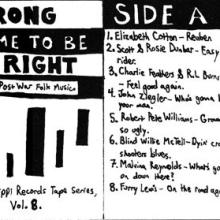 RONG
ME TO BE
RIGHT
Post War Folk Musics
ippi Records Tape Series,
Vol. 8.
SIDE A
1. Elizabeth Cotton - Reuben
2. Scott & Rosie Dunbar - Easy
rider.
3. Charlie Feathers & R.L. Burn
Feel good again.
4. John Ziegler - Who's gonna b
your man.
5. Robert Pete Williams - Gr
so ugly.
6. Blind Willie McTell - Dyin' cr
shooters blues.
7. Malvina Reynolds - What's go
on down there?
8. Furry Lewis - On the road aga